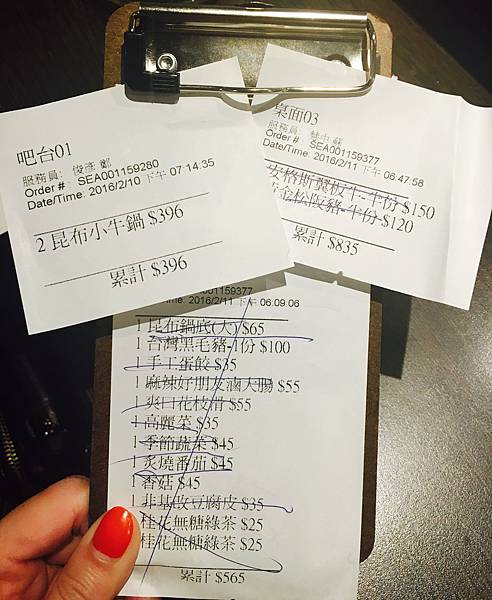 吧台01
服務員: 俊彥 鄭
Order #: SEA001159280
Date/Time: 2016/2/10 下午 07:14:35
2 昆布小牛鍋 $396
累計 $396
桌面03
服務員:
Order #: SEA001159377
Date/Time: 2016/2/11 下午 06:47:58
安格斯翼板牛-半份 $150
黃金松阪豬-半份 $120
累計 $835
001159377
Time: 2016/2/11 下午 06:09:06
1 昆布鍋底(大) $65
1 台灣黑毛豬-1份 $100
1 手工蛋餃 $35
1 麻辣好朋友滷大腸 $55
1 爽口花枝滑 $55
1 高麗菜 $35
1 季節蔬菜 $45
1 炙燒番茄 $45
1 香菇 $45
1 非基改豆腐皮 $35
桂花無糖綠茶 $25
桂花無糖綠茶 $25
累計 $565